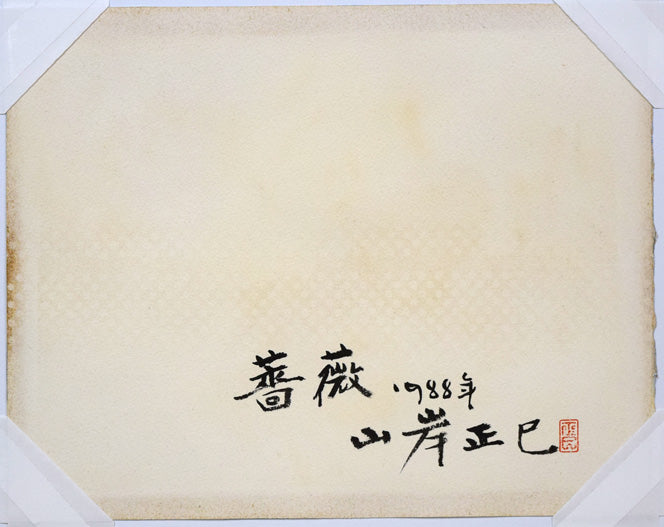 薔薇 1988年
山岸正巳